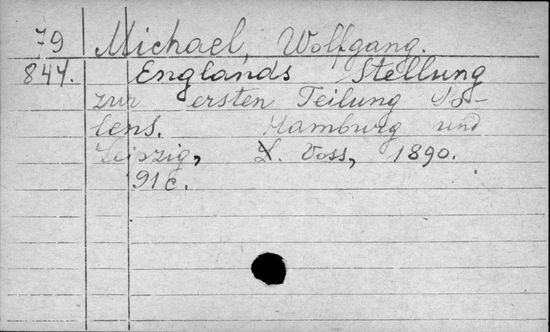 79 Michael, Wolfgang.
844. Englands Stellung
zur ersten Teilung Po-
lens. Hamburg und
Leipzig, L. Voss, 1890.
91 c.